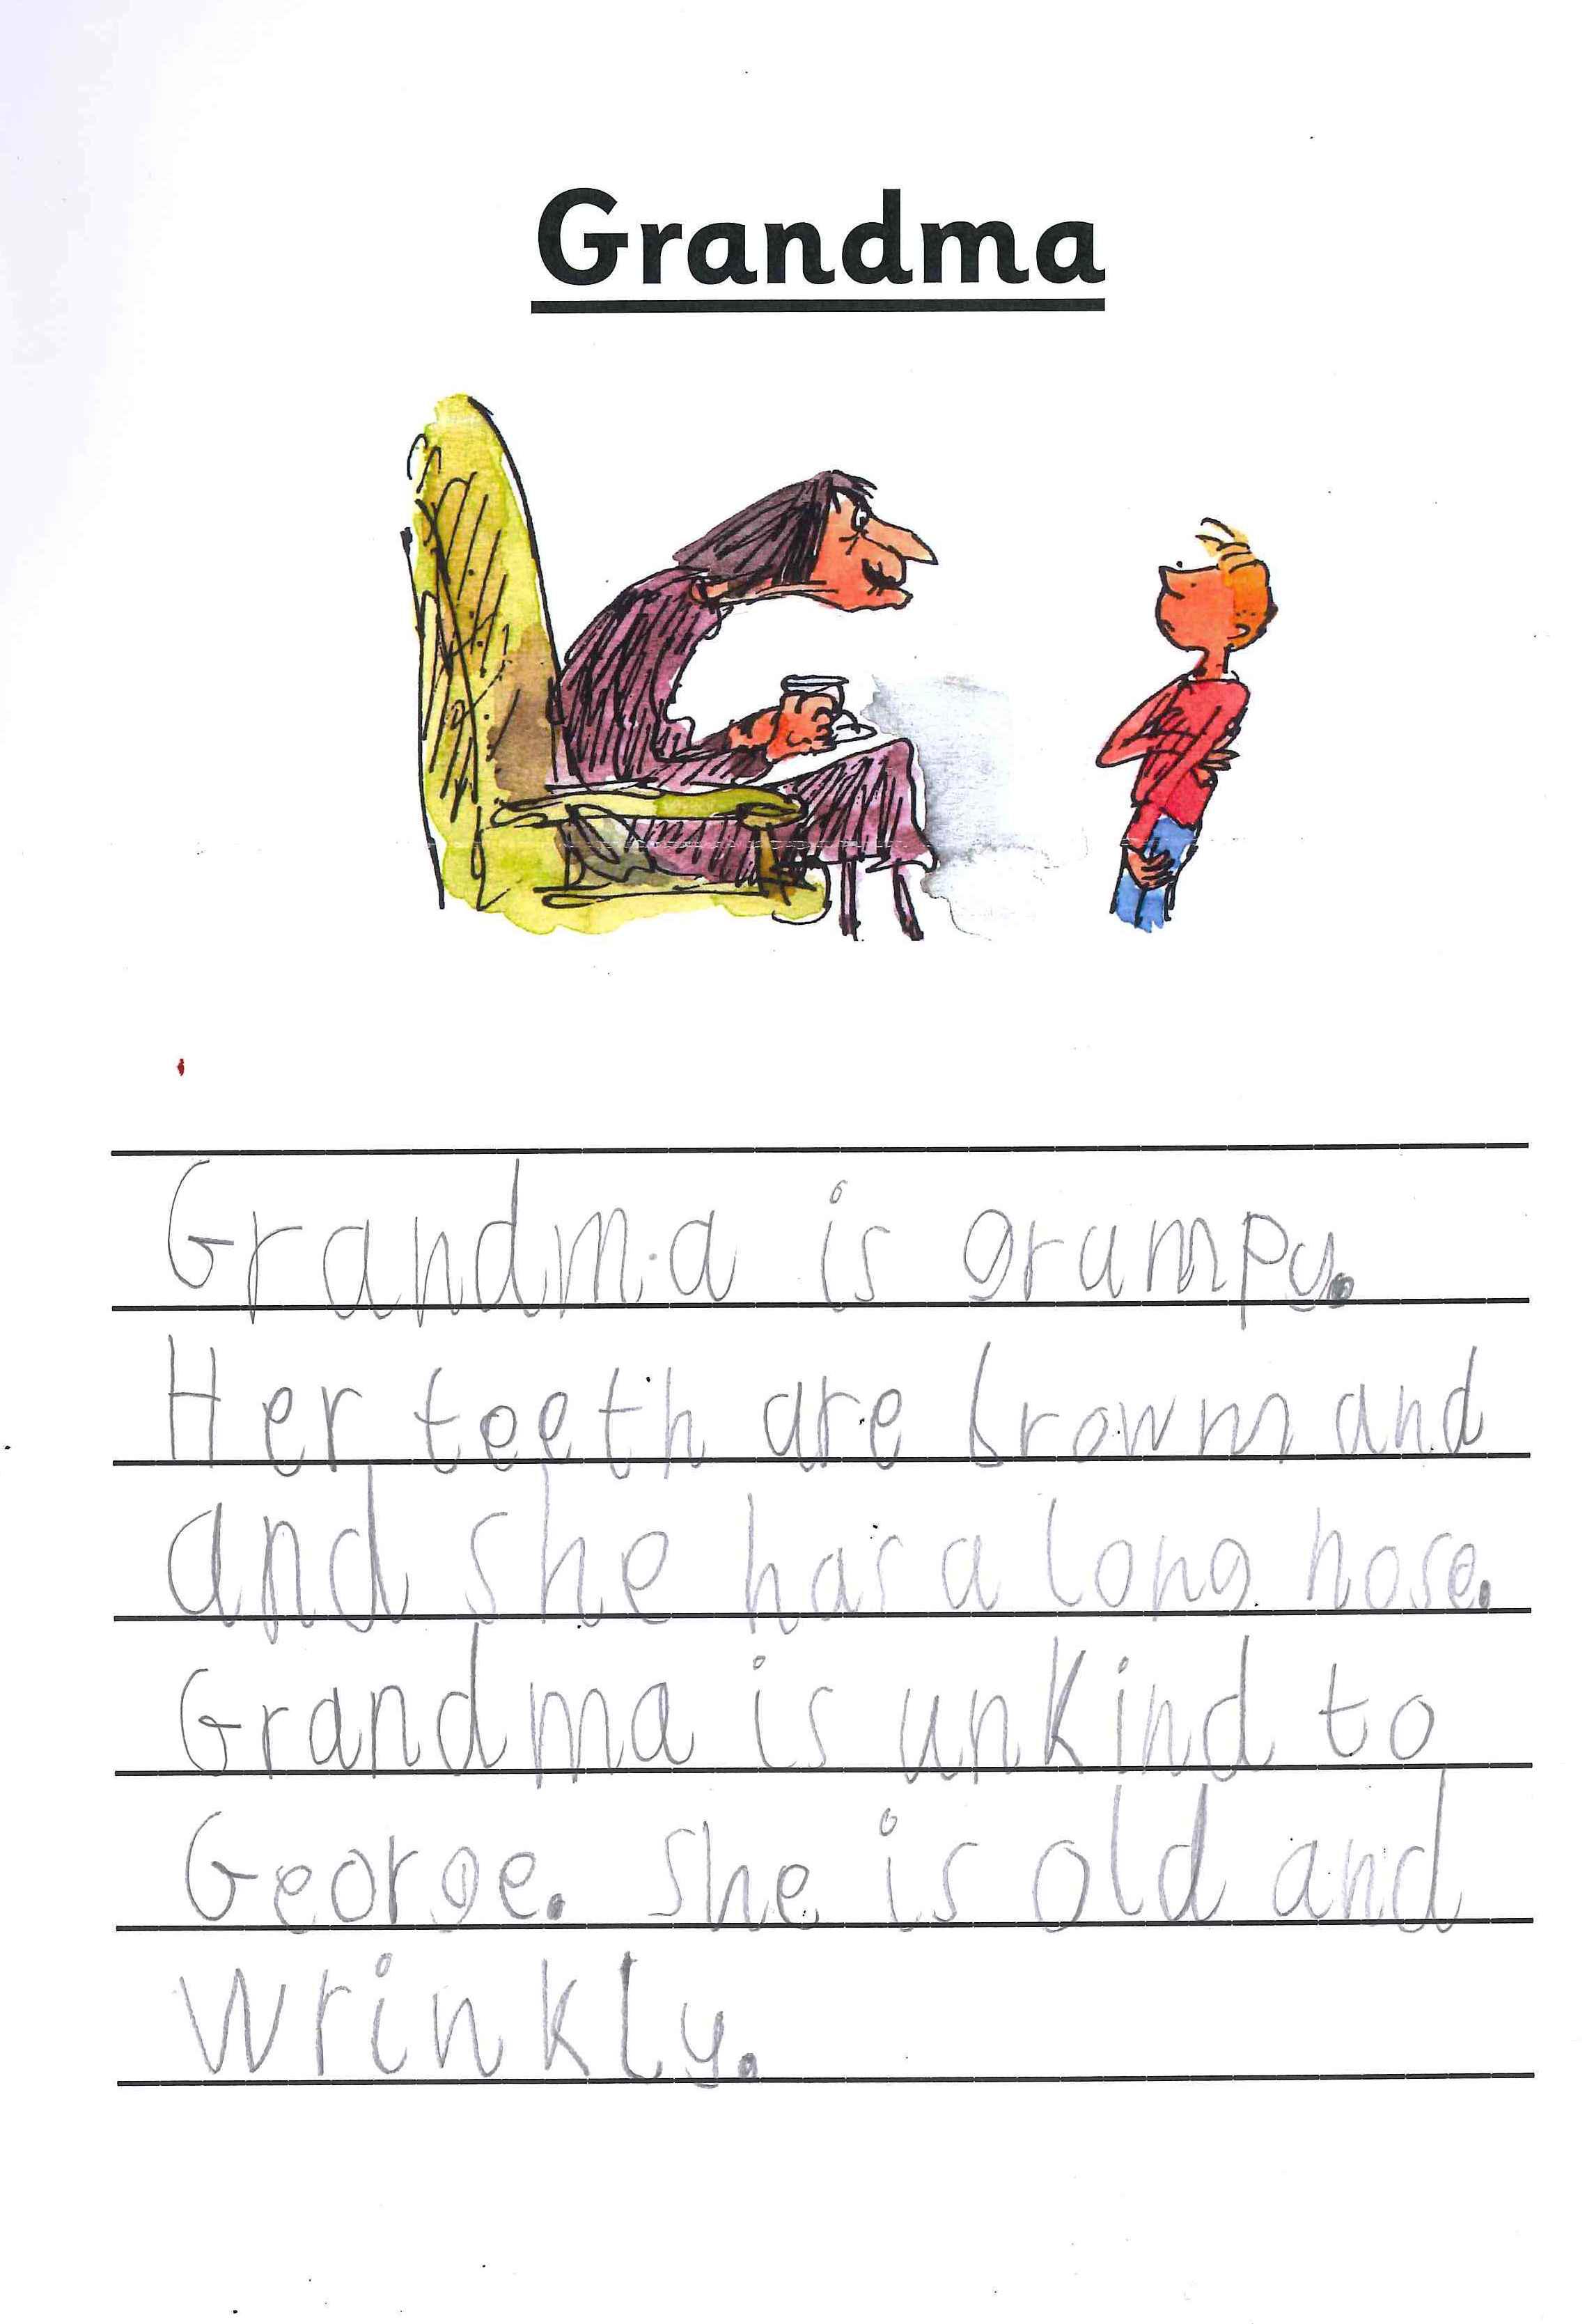 Grandma
Grandma is grumpy.
Her teeth are brown and
and she has a long nose.
Grandma is unkind to
George. She is old and
wrinkly.